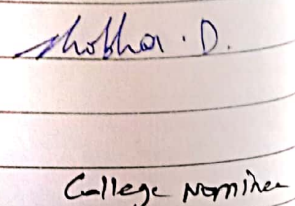 Shobha . D.
College Nominee